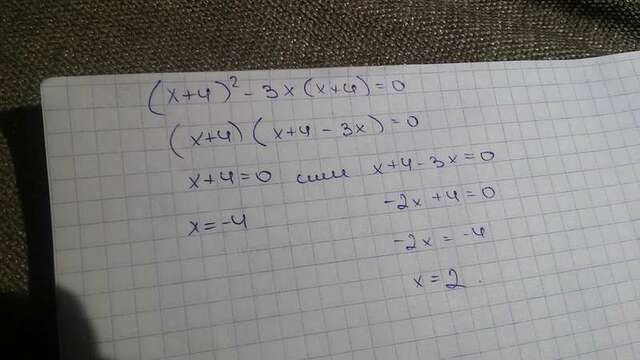 (x+4)² - 3x(x+4)=0
(x+4)(x+4-3x)=0
x+4=0 или x+4-3x=0
x=-4 -2x+4=0
-2x=-4
x=2.